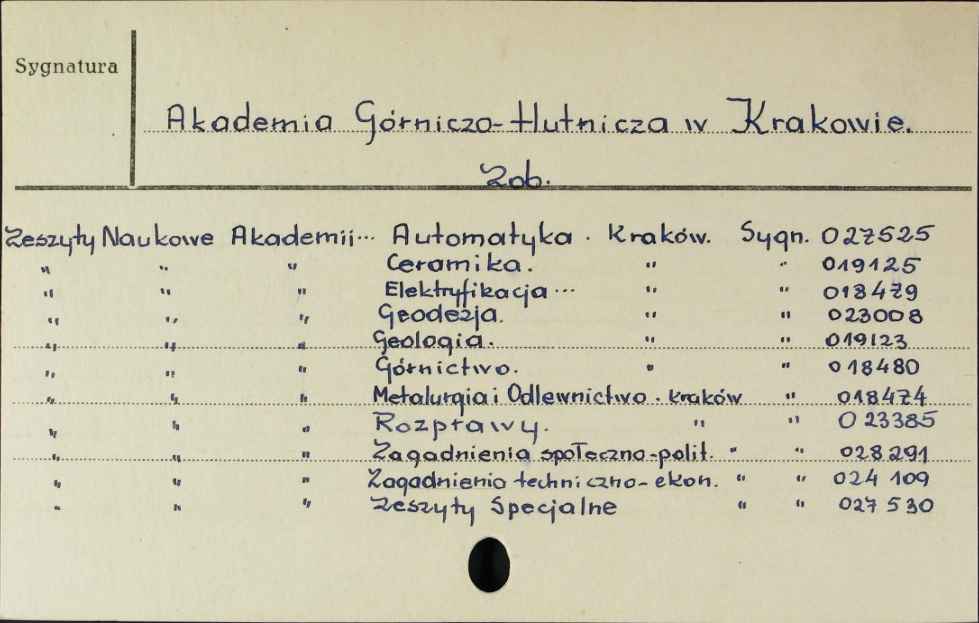 Sygnatura
Akademia Górniczo-Hutnicza w Krakowie.
Zob.
Zeszyty Naukowe Akademii... Automatyka. Kraków. Sygn. 027525
" " " Ceramika. " " 019125
" " " Elektryfikacja... " " 018479
" " " Geodezja. " " 023008
" " " Geologia. " " 019123
" " " Górnictwo. " " 018480
" " " Metalurgia i Odlewnictwo. Kraków " 018474
" " " Rozprawy. " " 023385
" " " Zagadnienia społeczno-polit. " " 028291
" " " Zagadnienia techniczno-ekon. " " 024109
" " " Zeszyty Specjalne " " 027530